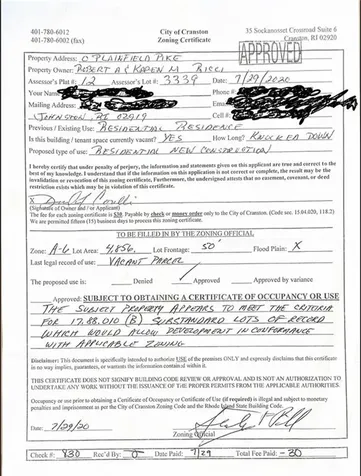 401-780-6012
401-780-6002 (fax)
City of Cranston
Zoning Certificate
35 Sockanosset Crossroad Suite 6
Cranston, RI 02920
APPROVED
Property Address: 0 PLAINFIELD PIKE
Property Owner: ROBERT A & KAREN M RICCI
Assessor's Plat #: 12 Assessor's Lot #: 3339 Date: 7/29/2020
Your Name Phone #:
Mailing Address Ema
JOHNSTON, RI 02919 Cell #
Previous / Existing Use: RESIDENTIAL RESIDENCE
Is this building / tenant space currently vacant? YES How Long? KNOCKED DOWN
Proposed type of use: RESIDENTIAL NEW CONSTRUCTION
I hereby certify that under penalty of perjury, the information and statements given on this applicant are true and correct to the
best of my knowledge. I understand if the information on this applicant is not correct or complete, the result may be the
invalidation or revocation of this zoning certificate. Furthermore, the undersigned attests that an easement, covenant, or deed
restriction exists which may be in violation of this certificate.
X
(Signature of Owner and / or Applicant)
The fee for each zoning certificate is $30. Payable by check or money order only to the City of Cranston. (Code sec. 15.04.020, 118.2)
We are permitted fifteen (15) business days to process this zoning certificate.
TO BE FILLED IN BY THE ZONING OFFICIAL
Zone: A-6 Lot Area: 4,856 Lot Frontage: 50' Flood Plain: X
Last legal record of use: VACANT PARCEL
The proposed use is: Denied ✓ Approved Approved by variance
Approved: SUBJECT TO OBTAINING A CERTIFICATE OF OCCUPANCY OR USE
THE SUBJECT PROPERTY APPEARS TO MEET THE CRITERIA
FOR 17.88.010 (B) SUBSTANDARD LOTS OF RECORD
WHICH WOULD ALLOW DEVELOPMENT IN CONFORMANCE
WITH APPLICABLE ZONING
Disclaimer: This document is specifically intended to authorize USE of the premises ONLY and expressly disclaims that this certificate
in no way implies, guarantees, or warrants the information contained within it.
THIS CERTIFICATE DOES NOT SIGNIFY BUILDING CODE REVIEW OR APPROVAL AND IS NOT AN AUTHORIZATION TO
UNDERTAKE ANY WORK WITHOUT THE ISSUANCE OF THE PROPER PERMITS FROM THE APPLICABLE AUTHORITIES.
Occupancy or use prior to obtaining a Certificate of Occupancy or Certificate of Use (if required) is illegal and subject to monetary
penalties and imprisonment as per the City of Cranston Zoning Code and the Rhode Island State Building Code.
Date: 7/29/20
Zoning Official
Check #: 830 Rec'd By: Date Paid: 7/29 Total Fee Paid: 30